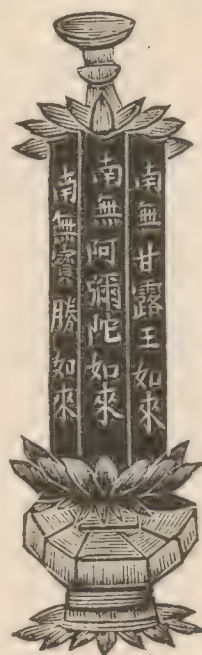 南無甘露王如來
南無阿彌陀如來
南無寶勝如來